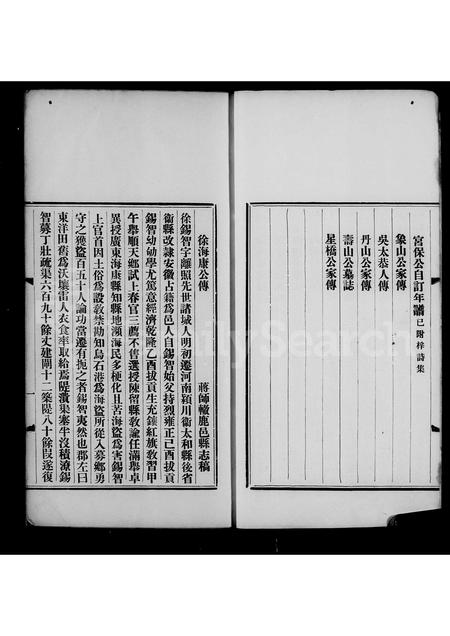 宮保公自訂年譜已附梓詩集
象山公家傳
吳太恭人傳
丹山公家傳
壽山公墓誌
星橋公家傳
徐海康公傳 蔣師轍鹿邑縣志稿
徐錫智字離照先世諸城人明初遷河南潁川衞太和縣後省
衞縣改隸安徽占籍為邑人自錫智始父持烈雍正己酉拔貢
錫智幼劬學尤篤意經濟乾隆乙酉拔貢生充鑲紅旗教習甲
午舉順天鄉試上春官三薦不售選授陳留縣教諭任滿舉卓
異授廣東海康縣知縣地瀕海民多梗化且苦海盜為害錫智
上官首因土俗為設教禁勘知烏石港為海盜所從入募鄉勇
守之獲盜百五十人論功當遷有扼之者錫智夷然也郡左日
東洋田舊為沃壤雷人衣食率取給焉隄潰渠塞半沒積潦錫
智募丁壯疏渠六百九十餘丈建閘十二築隄八十餘叚遂復